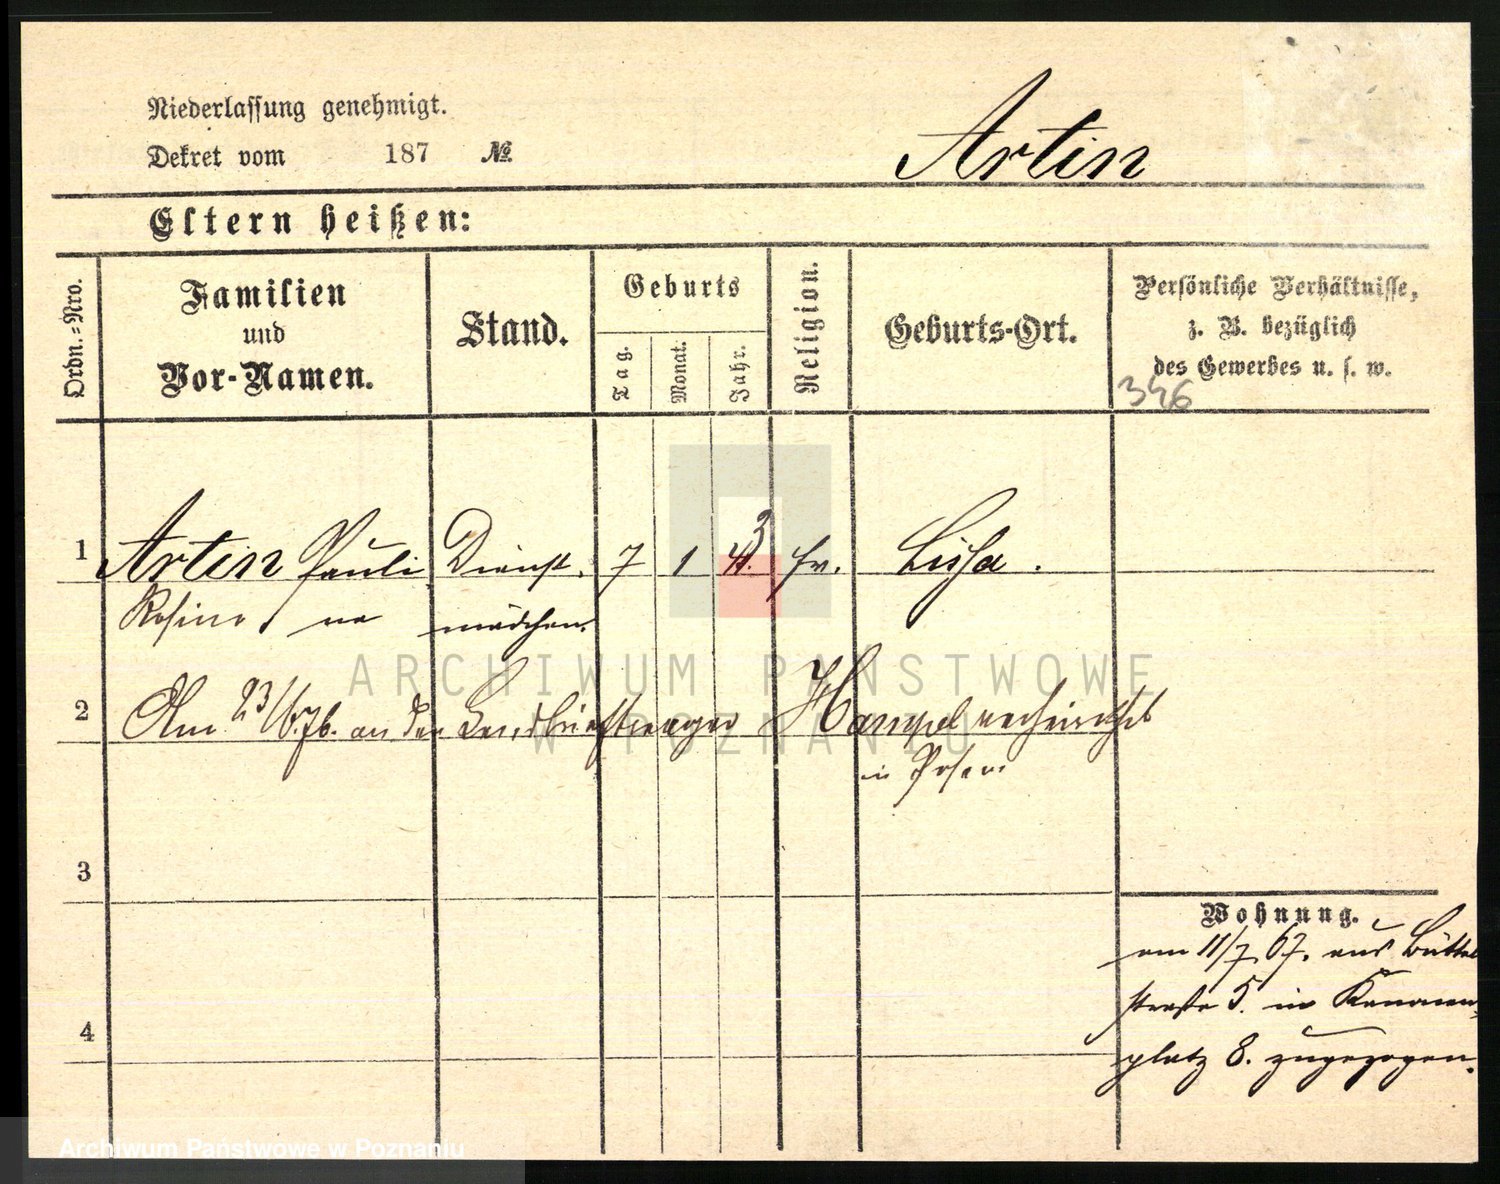 Niederlassung genehmigt.
Dekret vom 187 №
Artin
Eltern heißen:
Ordn.=Nro.
Familien
und
Vor-Namen.
Stand.
Geburts
Tag.
Monat.
Jahr.
Religion.
Geburts-Ort.
Persönliche Verhältnisse,
z. B. bezüglich
des Gewerbes u. s. w.
346
1 Artin Pauli Dienst. 7 1 43. Ev. Lissa.
Rosine ne mädchen.
2 Am 23/6.76. an den Landbriefträger Hampel verheirathet
in Posen
3
Wohnung.
am 11/7 67. aus Büttel
straße 5. in Kanonen
4
platz 8. zugezogen.
ARCHIWUM PAŃSTWOWE
W POZNANIU
Archiwum Państwowe w Poznaniu